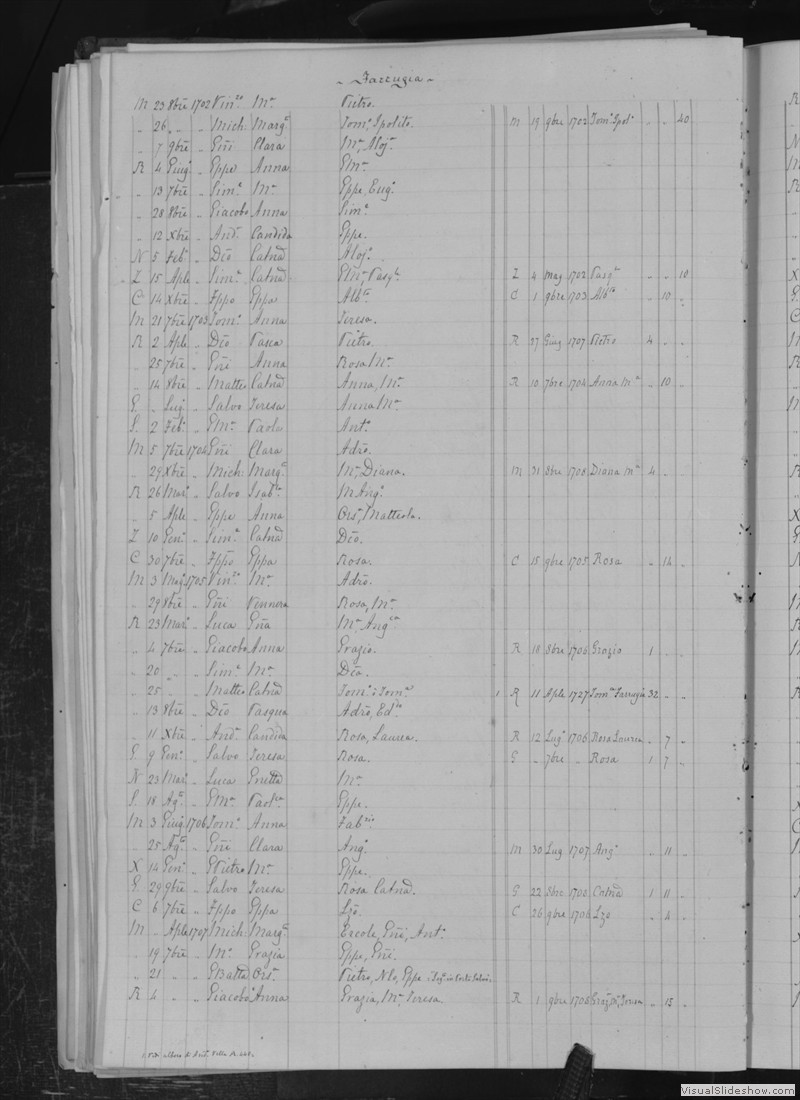 Farrugia
M 23 8bre 1702 Vinzo Ma Pietro.
" 26 " " Mich: Marga Toma, Ipolito. M 19 9bre 1702 Toma Ipolo " " 40
" 7 9bre " Gni Clara Ma, Aloja
R 4 Giugo " Gppe Anna Gma
" 13 7bre " Sime Ma Gppe, Euga
" 28 8bre " Giacobo Anna Sime
" 12 Xbre " Anda Candida Gppe.
N 5 Feb " Dco Catna Aloja.
Z 15 Aple " Sime Catna Z 4 mag 1702 " " 10
C 14 Xbre " Fppo Gppa Albto C 1 9bre 1703 Albto " 10 "
M 21 7bre 1703 Toma Anna Teresa.
R 2 Aple " Dco Pasca Pietro. R 27 Giug 1707 Pietro 4 " "
" 25 7bre " Gni Anna Rosa Ma
" 14 8bre " Matteo Catna Anna, Ma R 10 7bre 1704 Anna Ma " 10 "
G " Lug " Salvo Teresa Anna Ma
2 Feb " Gma Anto
M 5 7bre 1704 Gni Clara Adro.
" 29 Xbre " Mich: Marga Ma, Diana. M 31 8bre 1708 Diana Ma 4 "
R 26 Mar " Salvo Isabla M Anga
" 5 Aple " Gppe Anna Orsa, Matteola.
Z 10 Gen " Sime Catna Dco.
C 30 7bre " Fppo Gppa Rosa. C 15 9bre 1705 Rosa " 14 "
M 3 Mag 1705 Vinzo Ma Adro.
" 29 8bre " Gni Vennera Rosa, Ma
R 23 Mar " Luca Gna Ma, Angca
" 4 7bre " Giacobo Anna Grazio. R 18 8bre 1706 Grazio 1 " "
" 20 " " Sime Ma Dco.
" 25 " " Matteo Catna 1 R 11 Aple 1727 Toma Farrugia 32 " "
" 13 8bre " Dco Pasqua Adro,
" 11 Xbre " Anda Candida Rosa, Laurea. R 12 Lug 1706 Rosa Laurea " 7 "
G 9 Gen " Salvo Teresa Rosa. G " 7bre " Rosa 1 7 "
N 23 Mar " Luca Ma
18 Ago " Gma Paola Gppe.
M 3 Giug 1706 Toma Anna Fabzio.
" 25 Ago " Gni Clara Ango. M 30 Lug 1707 Ango " 11 "
X 14 Gen " G Pietro Ma Gppe.
G 29 9bre " Salvo Teresa Rosa Catna. G 22 8bre Catna 1 11 "
C 6 7bre " Fppo Gppa Lzo. C 26 9bre Lzo " 4 "
M " Aple 1707 Mich: Marga Ercole, Gni, Anto
" 19 7bre " Ma Grazia Gppe, Gni.
" 21 " " GBatta Orsa Pietro, Nlo, Gppe
R 4 " " Giacobo Anna Grazia, Ma, Teresa. R 1 9bre " 15 "